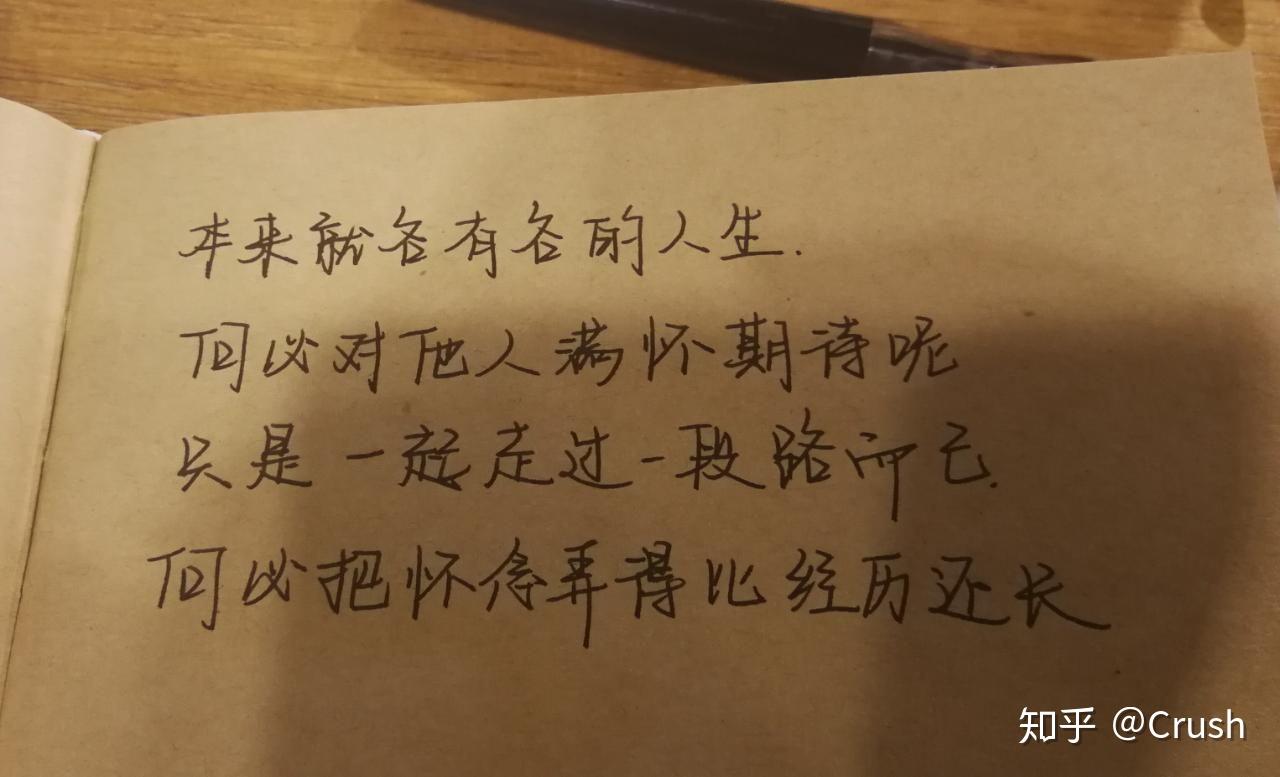 本来就各有各的人生.
何必对他人满怀期待呢
只是一起走过一段路而已.
何必把怀念弄得比经历还长
知乎 @Crush